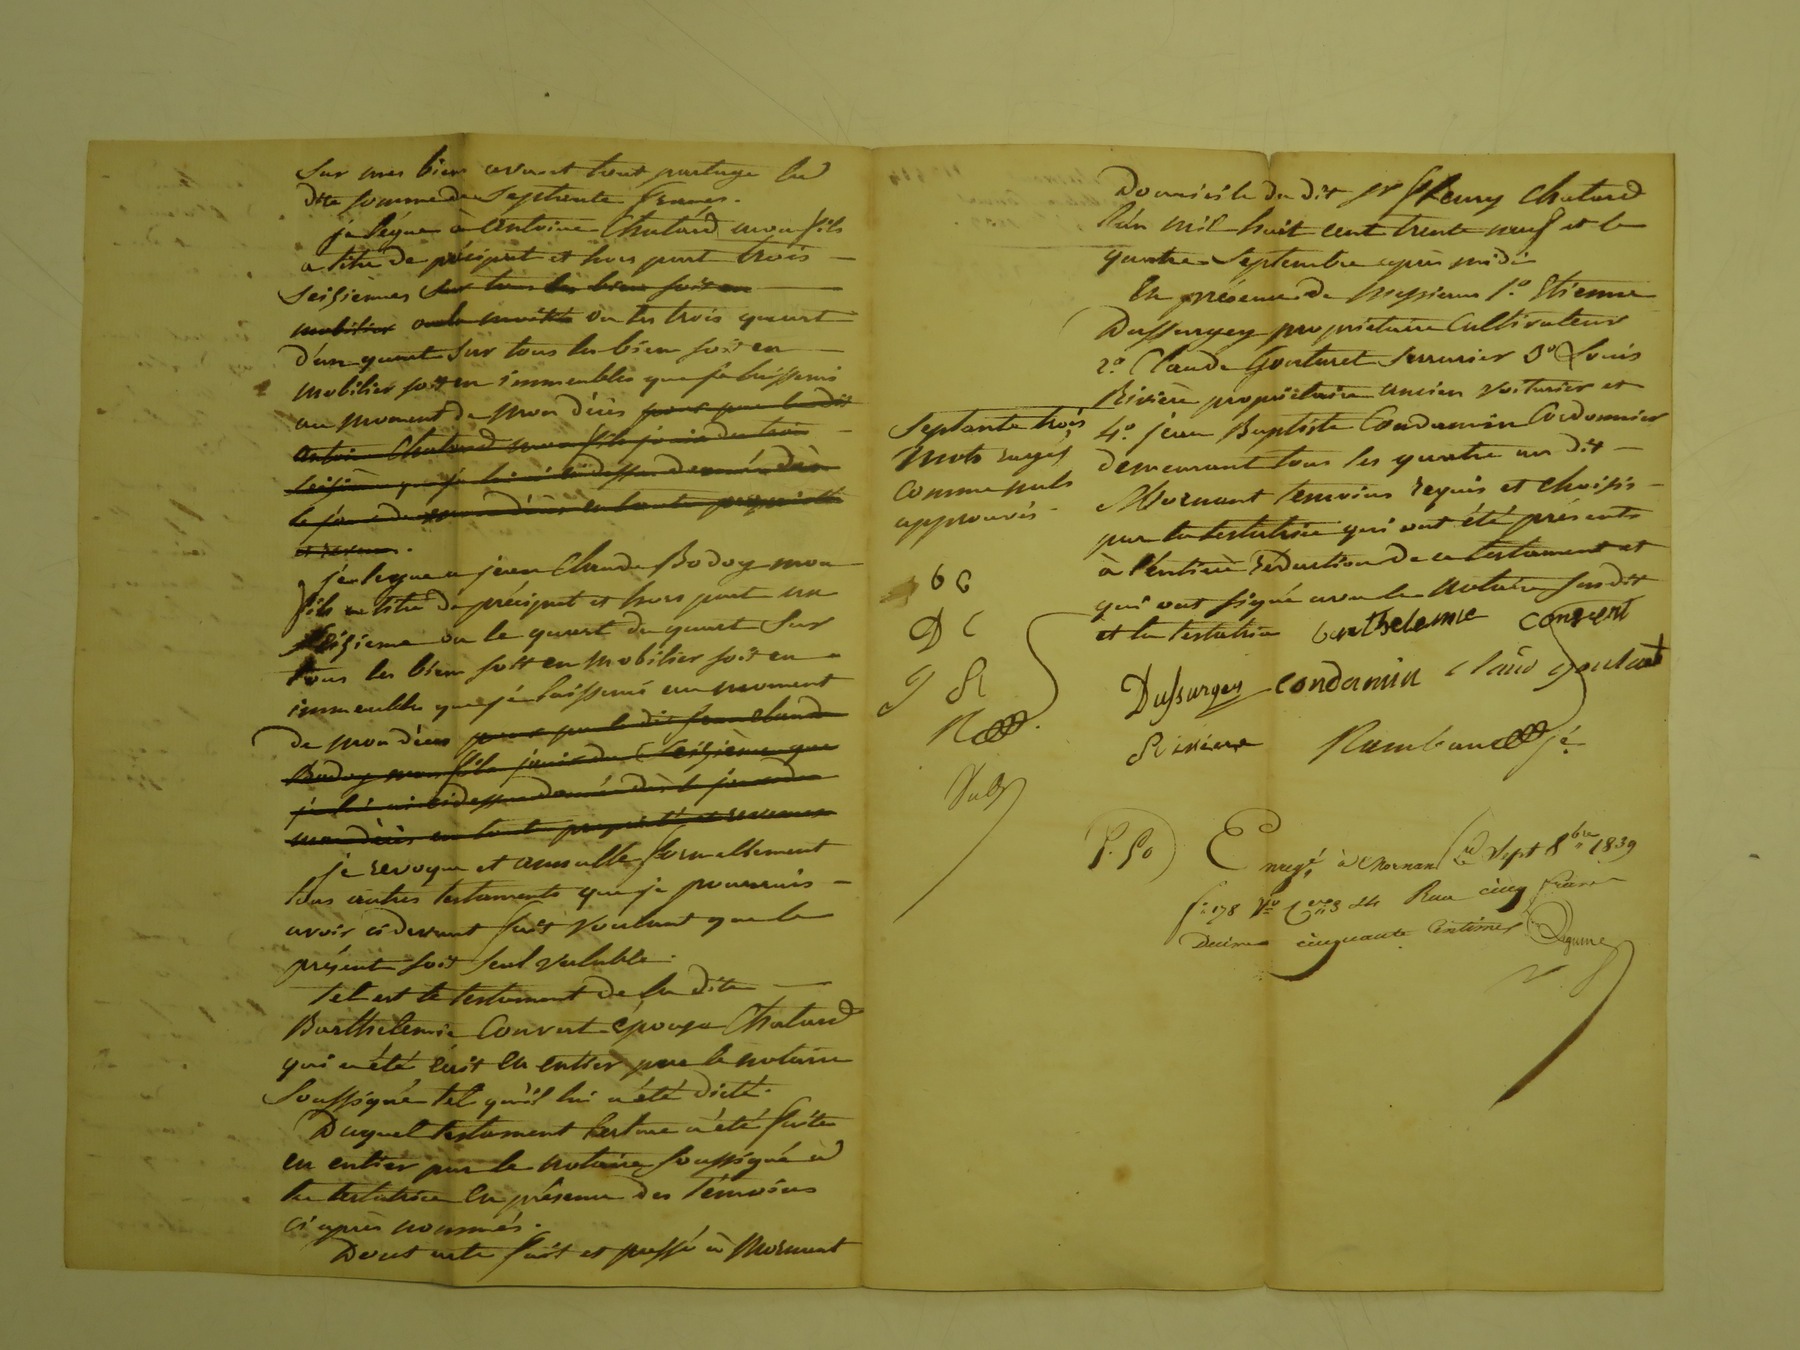 sur mes biens avant tout partage la
dite somme de septente francs.
je légue à antoine Chatard mon fils
a titre de préciput et hors part trois
seiziemes sur tous les biens soit en
mobilier ou les trois quart
d'un quart sur tous les bien soit en
mobilier soit en immeubles que je laisserai
au moment de mon décès pour que le dit
antoine Chatard mon fils jouisse des trois
seizième que je lui ai ci dessus donné dès
le jour de mon décès en toute propriété
et revenu.
je legue a jean Claude Bodoy mon
fils a titre de préciput et hors part un
seizieme ou le quart du quart sur
tous les bien soit en mobilier soit en
immeubles que je laisserai au moment
de mon décès pour que le dit jean claude
Bodoy mon fils jouisse du seizième que
je lui ai ci dessus donné dès le jour de
mon décès en toute propriété et revenus
je revoque et annulle formellement
tous autres testaments que je pourrais
avoir ci devant fait voulant que le
présent soit seul valable.
Tel est le testament de la dite
Barthelemie Convert épouse Chatard
qui a été écrit en entier par le notaire
soussigné tel qu'il lui a été dicté.
Duquel testament lecture a été faite
en entier par le notaire soussigné à
la testatrice en présence des témoins
ci après nommés.
Dont acte fait et passé à Mornant
Septante trois
mots rayés
comme nuls
approuvés
b C
D C
g R
R
Domicile du dit Sr fleury Chatard
l'an mil huit cent trente neuf et le
quatre Septembre après midi
En présence de Messieurs 1.o Etienne
Dussurgey propriétaire Cultivateur
2.o Claude Goutaret Serrurier 3.o Louis
Rivière propriétaire ancien voiturier et
4.o jean Baptiste Condamin Cordonnier
demeurant tous les quatre au dit
Mornant temoins requis et choisis
par la testatrice qui ont été présents
à l'entière rédaction de ce testament et
qui ont signé avec le notaire susdit
et la testatrice barthelemie convert
Dussurgey condamin Claude goutaret
Riviere Rambaud jé
Enregé. à Mornant le sept 8bre 1839
f.o 178 Vo Ces 3 Reçu cinq francs
Decime cinquante centimes